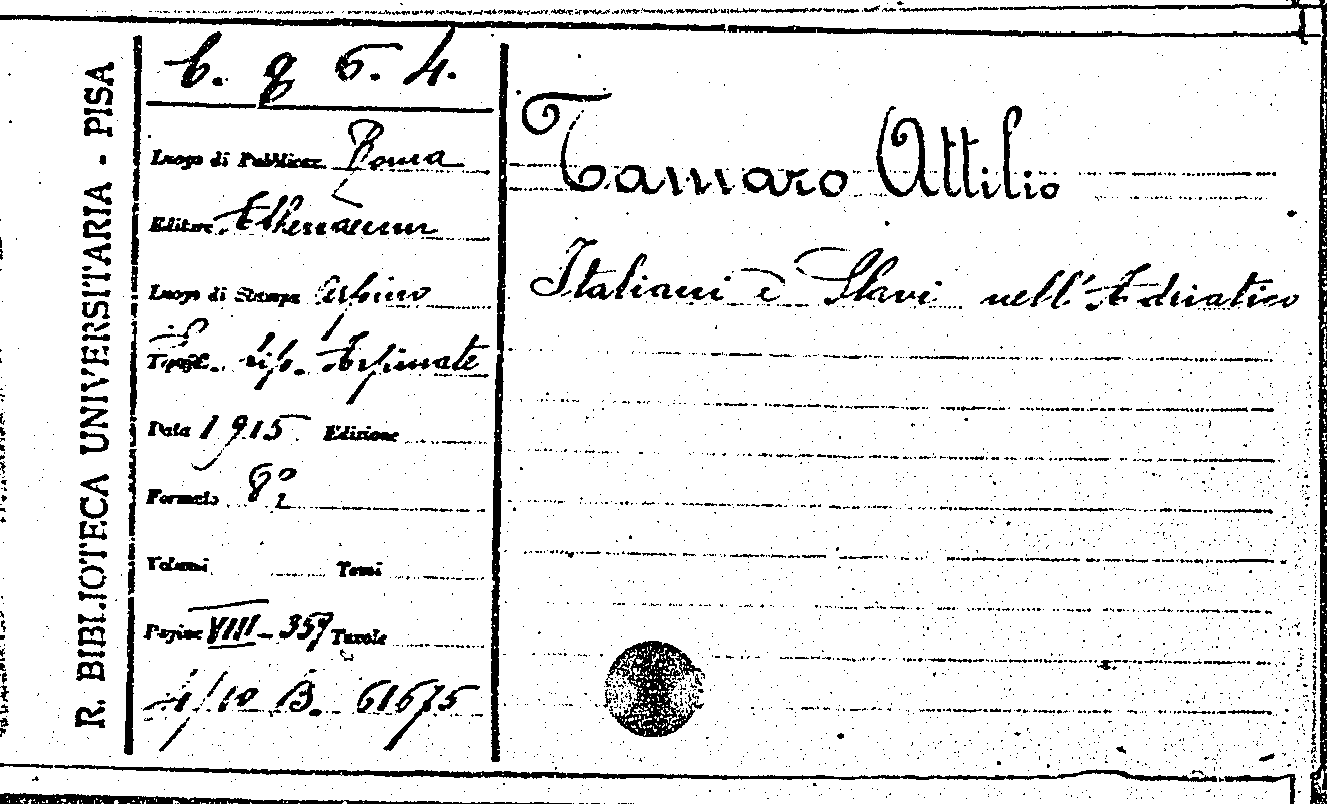 R. BIBLIOTECA UNIVERSITARIA - PISA
b. q 6. 4.
Luogo di Pubblicaz. Roma
Editore Athenaeum
Luogo di Stampa Arpino
Tipogr. tip. Arpinate
Data 1915 Edizione
Formato 8º
Volumi Tomi
Pagine VIII - 359 Tavole
4/10 B. 61675
Tamaro Attilio
Italiani e Slavi nell'Adriatico